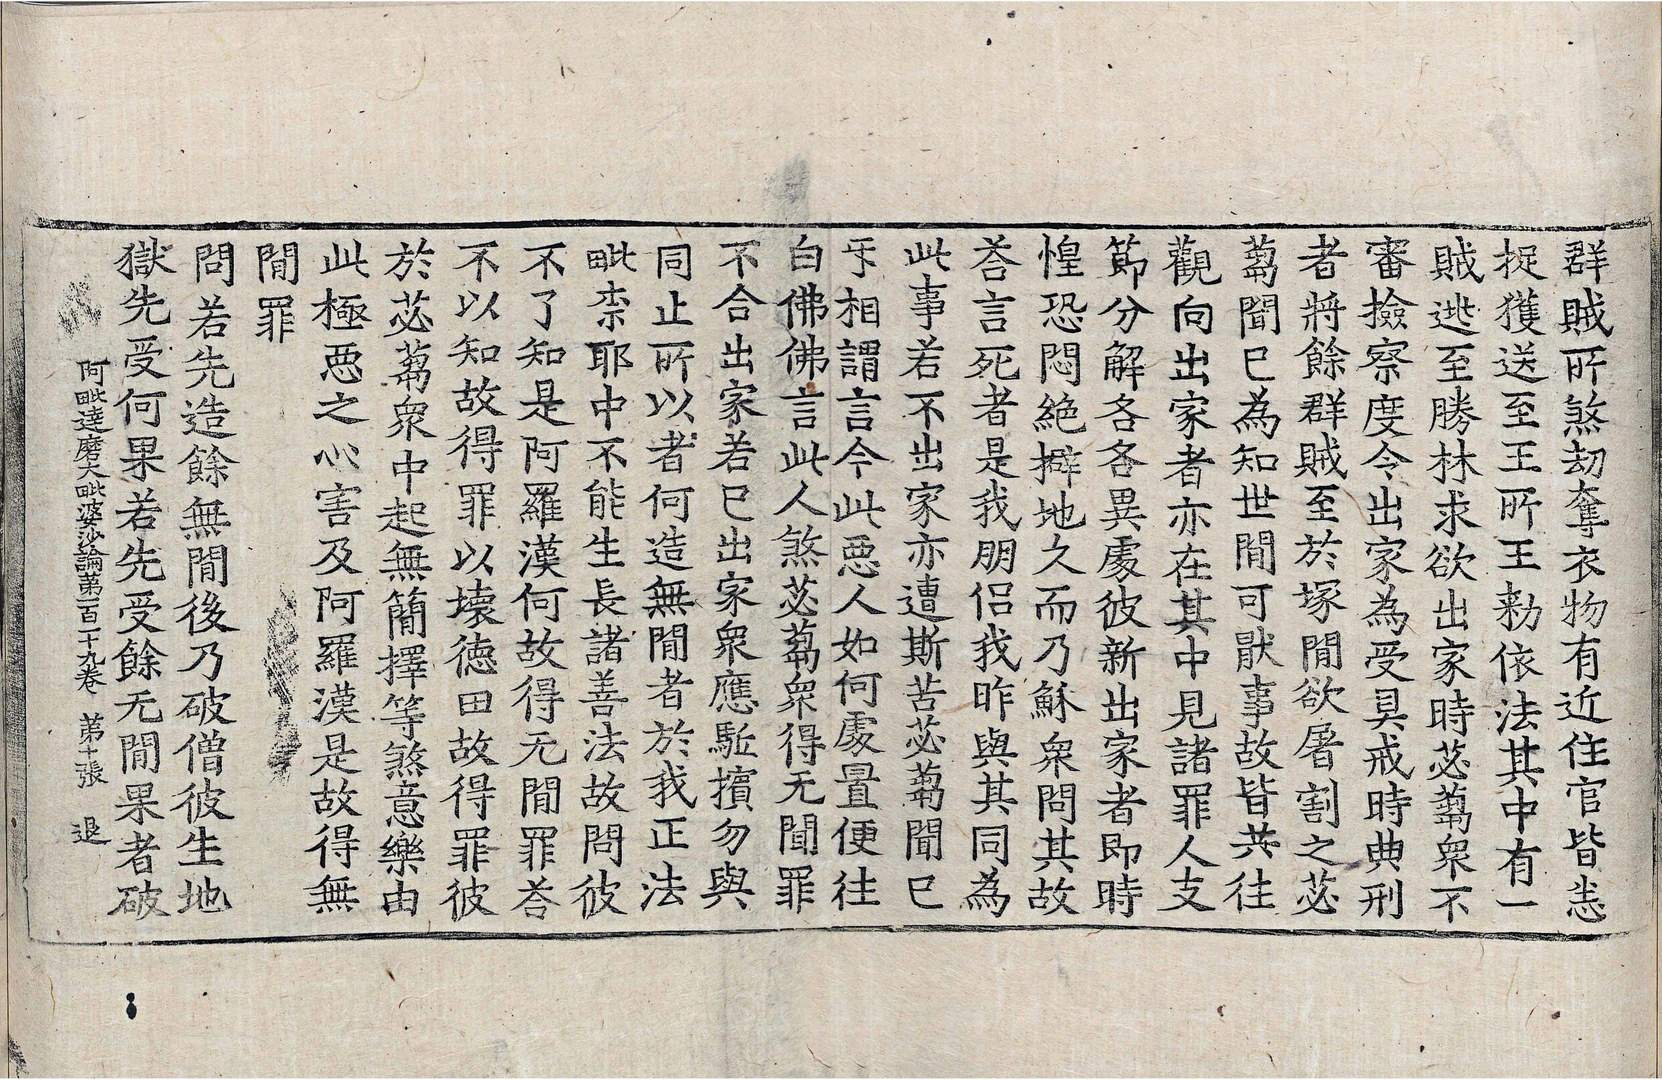 群賊所煞劫奪衣物有近住官皆悉
捉獲送至王所王勑依法其中有一
賊逃至勝林求欲出家時苾蒭衆不
審撿察度令出家為受具戒時典刑
者將餘群賊至於塚閒欲屠割之苾
蒭聞已為知世閒可猒事故皆共往
觀向出家者亦在其中見諸罪人支
節分解各各異處彼新出家者即時
惶恐悶絶擗地久而乃穌衆問其故
荅言死者是我朋侣我昨與其同為
此事若不出家亦遭斯苦苾蒭聞已
乎相謂言今此惡人如何處置便往
白佛佛言此人煞苾蒭衆得无閒罪
不合出家若已出家衆應駈擯勿與
同止所以者何造無閒者於我正法
毗柰耶中不能生長諸善法故問彼
不了知是阿羅漢何故得无閒罪荅
不以知故得罪以壞德田故得罪彼
於苾蒭衆中起無簡擇等煞意樂由
此極惡之心害及阿羅漢是故得無
閒罪
問若先造餘無閒後乃破僧彼生地
獄先受何果若先受餘无閒果者破
阿毗達磨大毗婆沙論第一百一十九卷 第十張 退